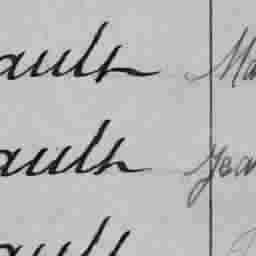 ault Ma
ault Jea
ault